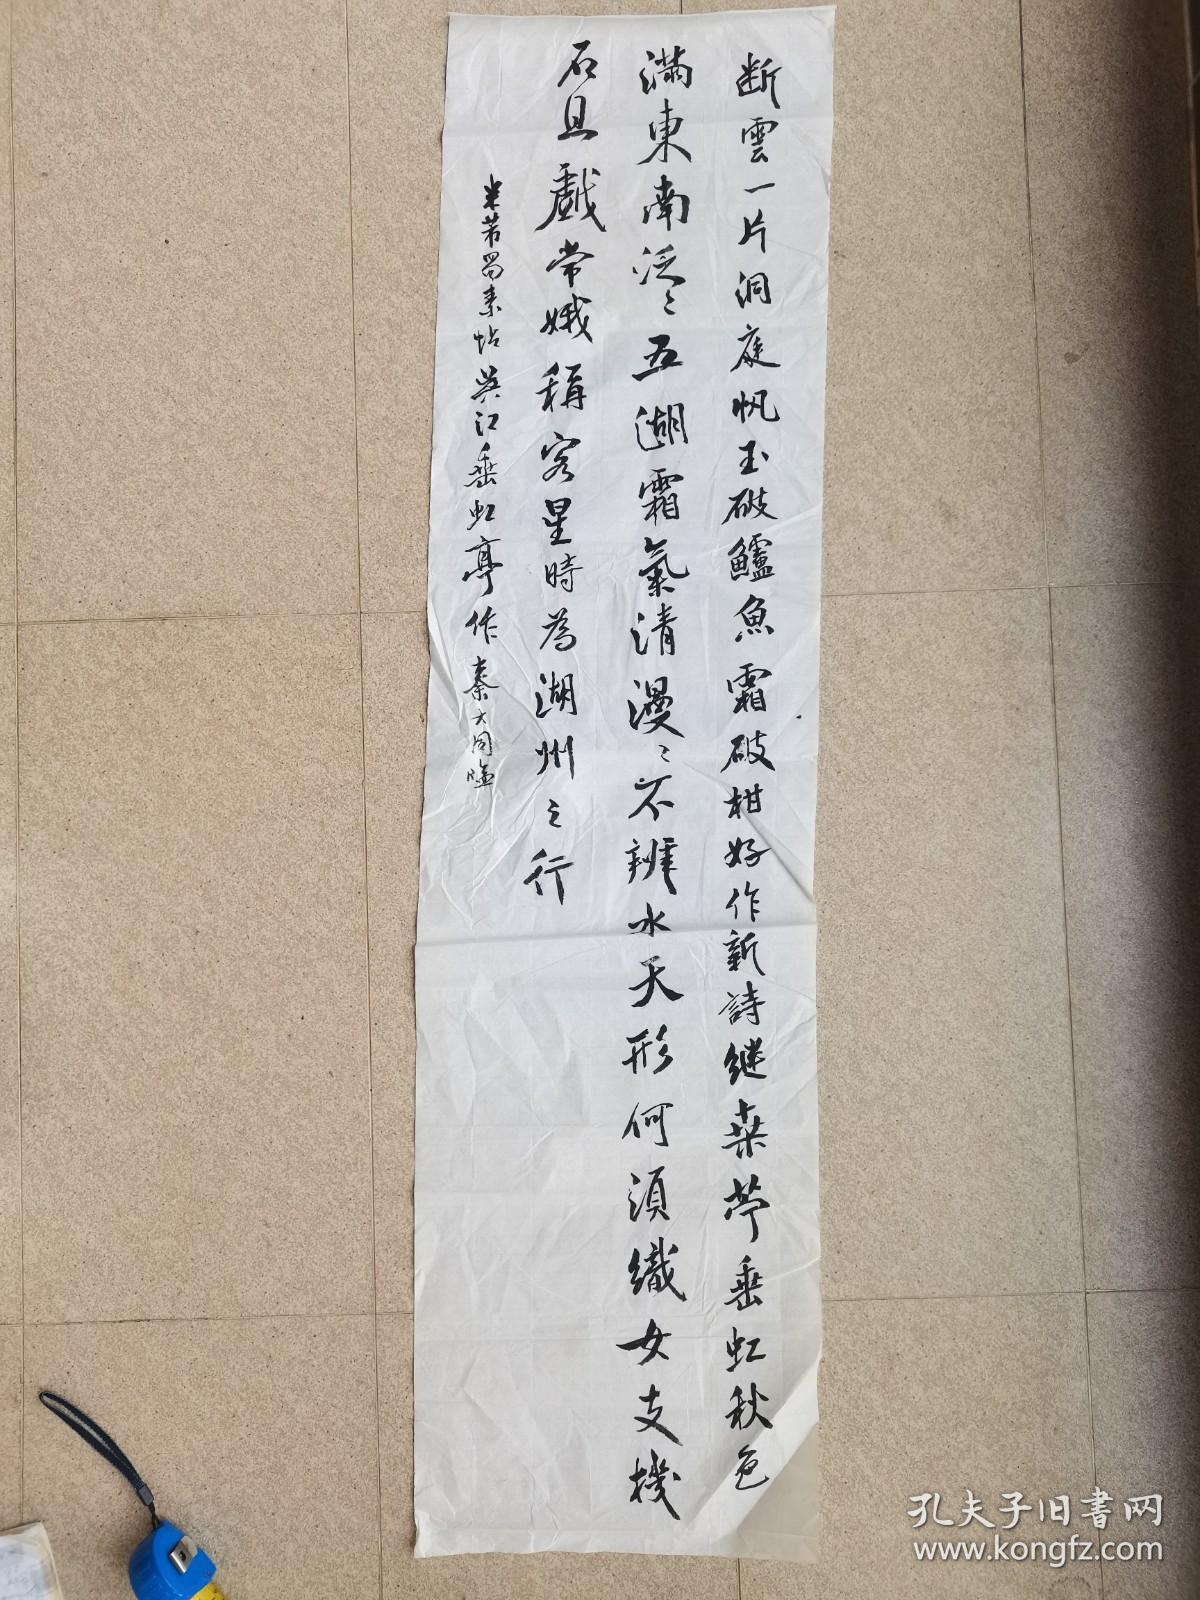 断雲一片洞庭帆玉破鱸魚霜破柑好作新詩继桑苧垂虹秋色
滿東南泛〻五湖霜氣清漫〻不辨水天形何須織女支機
石且戲常娥稱客星時為湖州之行
米芾蜀素帖吳江垂虹亭作秦大同臨
孔夫子旧书网
www.kongfz.com